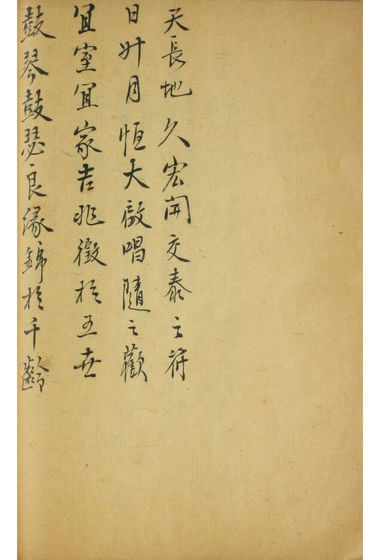 天長地久宏開交泰之符
日升月恒大啟唱隨之歡
宜室宜家吉兆徵於五世
鼓琴鼓瑟良緣錦於千齡